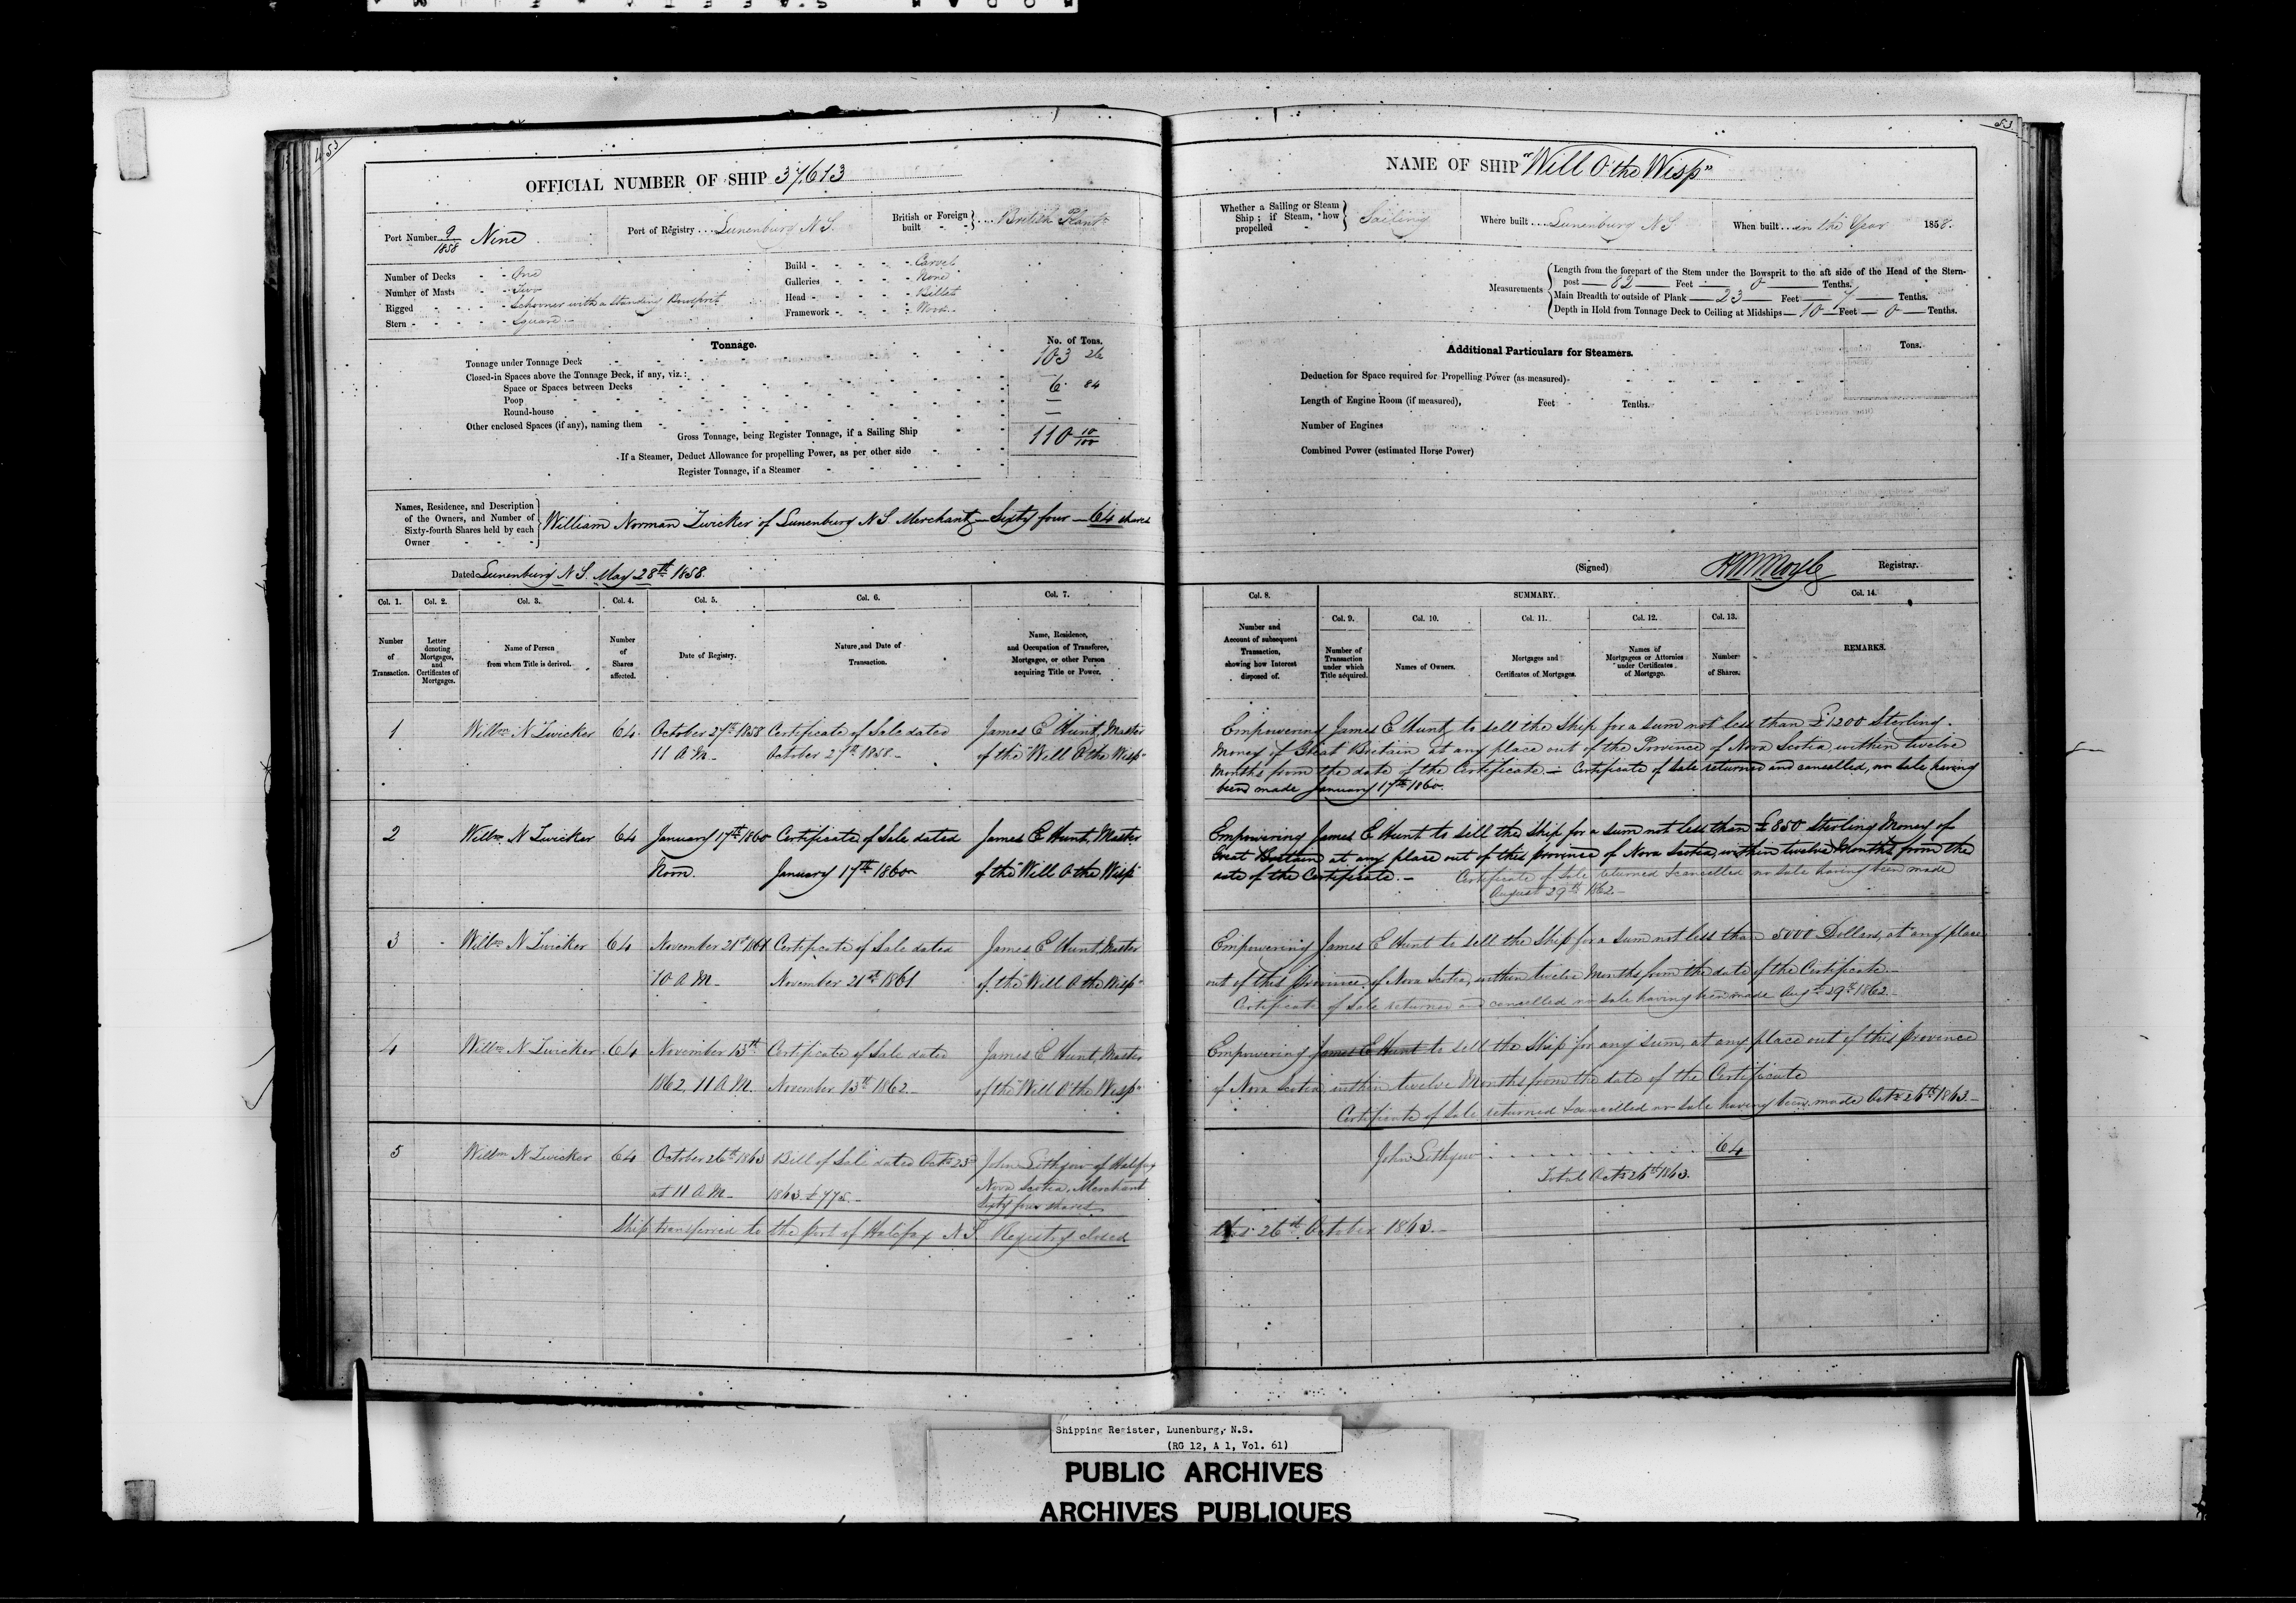 53
OFFICIAL NUMBER OF SHIP 37613
Port Number 9/1858 Nine
Port of Registry Lunenburg N S.
British or Foreign built British Plant.
Number of Decks One
Number of Masts Two
Rigged Schooner with a Standing Bowsprit
Stern Square
Build Carvel
Galleries None
Head Billet
Framework Wood
Tonnage. No. of Tons.
Tonnage under Tonnage Deck 103 26
Closed-in Spaces above the Tonnage Deck, if any, viz.:
Space or Spaces between Decks 6 84
Poop —
Round-house —
Other enclosed Spaces (if any), naming them
Gross Tonnage, being Register Tonnage, if a Sailing Ship 110 10/100
If a Steamer, Deduct Allowance for propelling Power, as per other side
Register Tonnage, if a Steamer
Names, Residence, and Description of the Owners, and Number of Sixty-fourth Shares held by each Owner
William Norman Zwicker of Lunenburg N S Merchant — Sixty four — 64 shares
Dated Lunenburg N S. May 28th 1858.
Col. 1. Col. 2. Col. 3. Col. 4. Col. 5. Col. 6. Col. 7.
Number of Transaction.
Letter denoting Mortgages, and Certificates of Mortgages.
Name of Person from whom Title is derived.
Number of Shares affected.
Date of Registry.
Nature and Date of Transaction.
Name, Residence, and Occupation of Transferee, Mortgagee, or other Person acquiring Title or Power.
1 Willm N Zwicker 64 October 27th 1858 Certificate of Sale dated James E Hunt, Master
11 A M October 27th 1858 of the "Will O the Wisp"
2 Willm N Zwicker 64 January 17th 1860 Certificate of Sale dated James E Hunt, Master
Noon. January 17th 1860 of the "Will O the Wisp"
3 Willm N Zwicker 64 November 21st 1861 Certificate of Sale dated James E Hunt, Master
10 A M November 21st 1861 of the "Will O the Wisp"
4 Willm N Zwicker 64 November 13th Certificate of Sale dated James E Hunt, Master
1862, 11 A M. November 13th 1862 of the "Will O the Wisp"
5 Willm N Zwicker 64 October 26th 1863 Bill of Sale dated Octr 23d John Lithgow of Halifax
at 11 A M 1863. £775. Nova Scotia, Merchant
Sixty four shares
Ship transferred to the port of Halifax N S. Registry closed
53
NAME OF SHIP "Will O the Wisp"
Whether a Sailing or Steam Ship; if Steam, how propelled Sailing
Where built Lunenburg N S
When built in the Year 1858.
Measurements
Length from the forepart of the Stem under the Bowsprit to the aft side of the Head of the Stern-
post 82 Feet 0 Tenths.
Main Breadth to outside of Plank 23 Feet 7 Tenths.
Depth in Hold from Tonnage Deck to Ceiling at Midships 10 Feet 0 Tenths.
Additional Particulars for Steamers. Tons.
Deduction for Space required for Propelling Power (as measured)
Length of Engine Room (if measured), Feet Tenths.
Number of Engines
Combined Power (estimated Horse Power)
(Signed) Registrar.
Col. 8. SUMMARY. Col. 14.
Col. 9. Col. 10. Col. 11. Col. 12. Col. 13.
Number and Account of subsequent Transaction, showing how Interest disposed of.
Number of Transaction under which Title acquired.
Names of Owners.
Mortgages and Certificates of Mortgages.
Names of Mortgagees or Attornies under Certificates of Mortgage.
Number of Shares.
REMARKS.
Empowering James E Hunt to sell the Ship for a sum not less than £1200 Sterling
Money of Great Britain at any place out of the Province of Nova Scotia, within twelve
Months from the date of the Certificate. — Certificate of Sale returned and cancelled, no sale having
been made January 17th 1860.
Empowering James E Hunt to sell the Ship for a sum not less than £850 Sterling Money of
Great Britain at any place out of this province of Nova Scotia, within twelve Months from the
date of the Certificate. — Certificate of Sale returned & cancelled no sale having been made
August 29th 1862.
Empowering James E Hunt to sell the Ship for a sum not less than 5000 Dollars, at any place
out of this province of Nova Scotia, within twelve Months from the date of the Certificate.
Certificate of Sale returned and cancelled no sale having been made Augt 29th 1862.
Empowering James E Hunt to sell the Ship for any sum, at any place out of this province
of Nova Scotia, within twelve Months from the date of the Certificate
Certificate of Sale returned & cancelled no sale having been made Octr 26th 1863.
John Lithgow 64
Total Octr 26th 1863.
this 26th October 1863.
Shipping Register, Lunenburg, N.S.
(RG 12, A 1, Vol. 61)
PUBLIC ARCHIVES
ARCHIVES PUBLIQUES